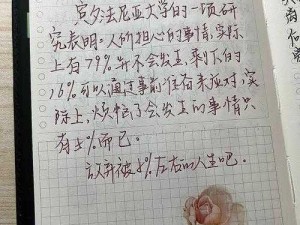 宾夕法尼亚大学的一项研
究表明:人所担心的事情,实际
上有79%并不会发生,剩下的
16%可以通过事前准备来应对,实
际上,烦恼了会发生的事情只
有5%而已。
放弃被5%左右的人生吧。